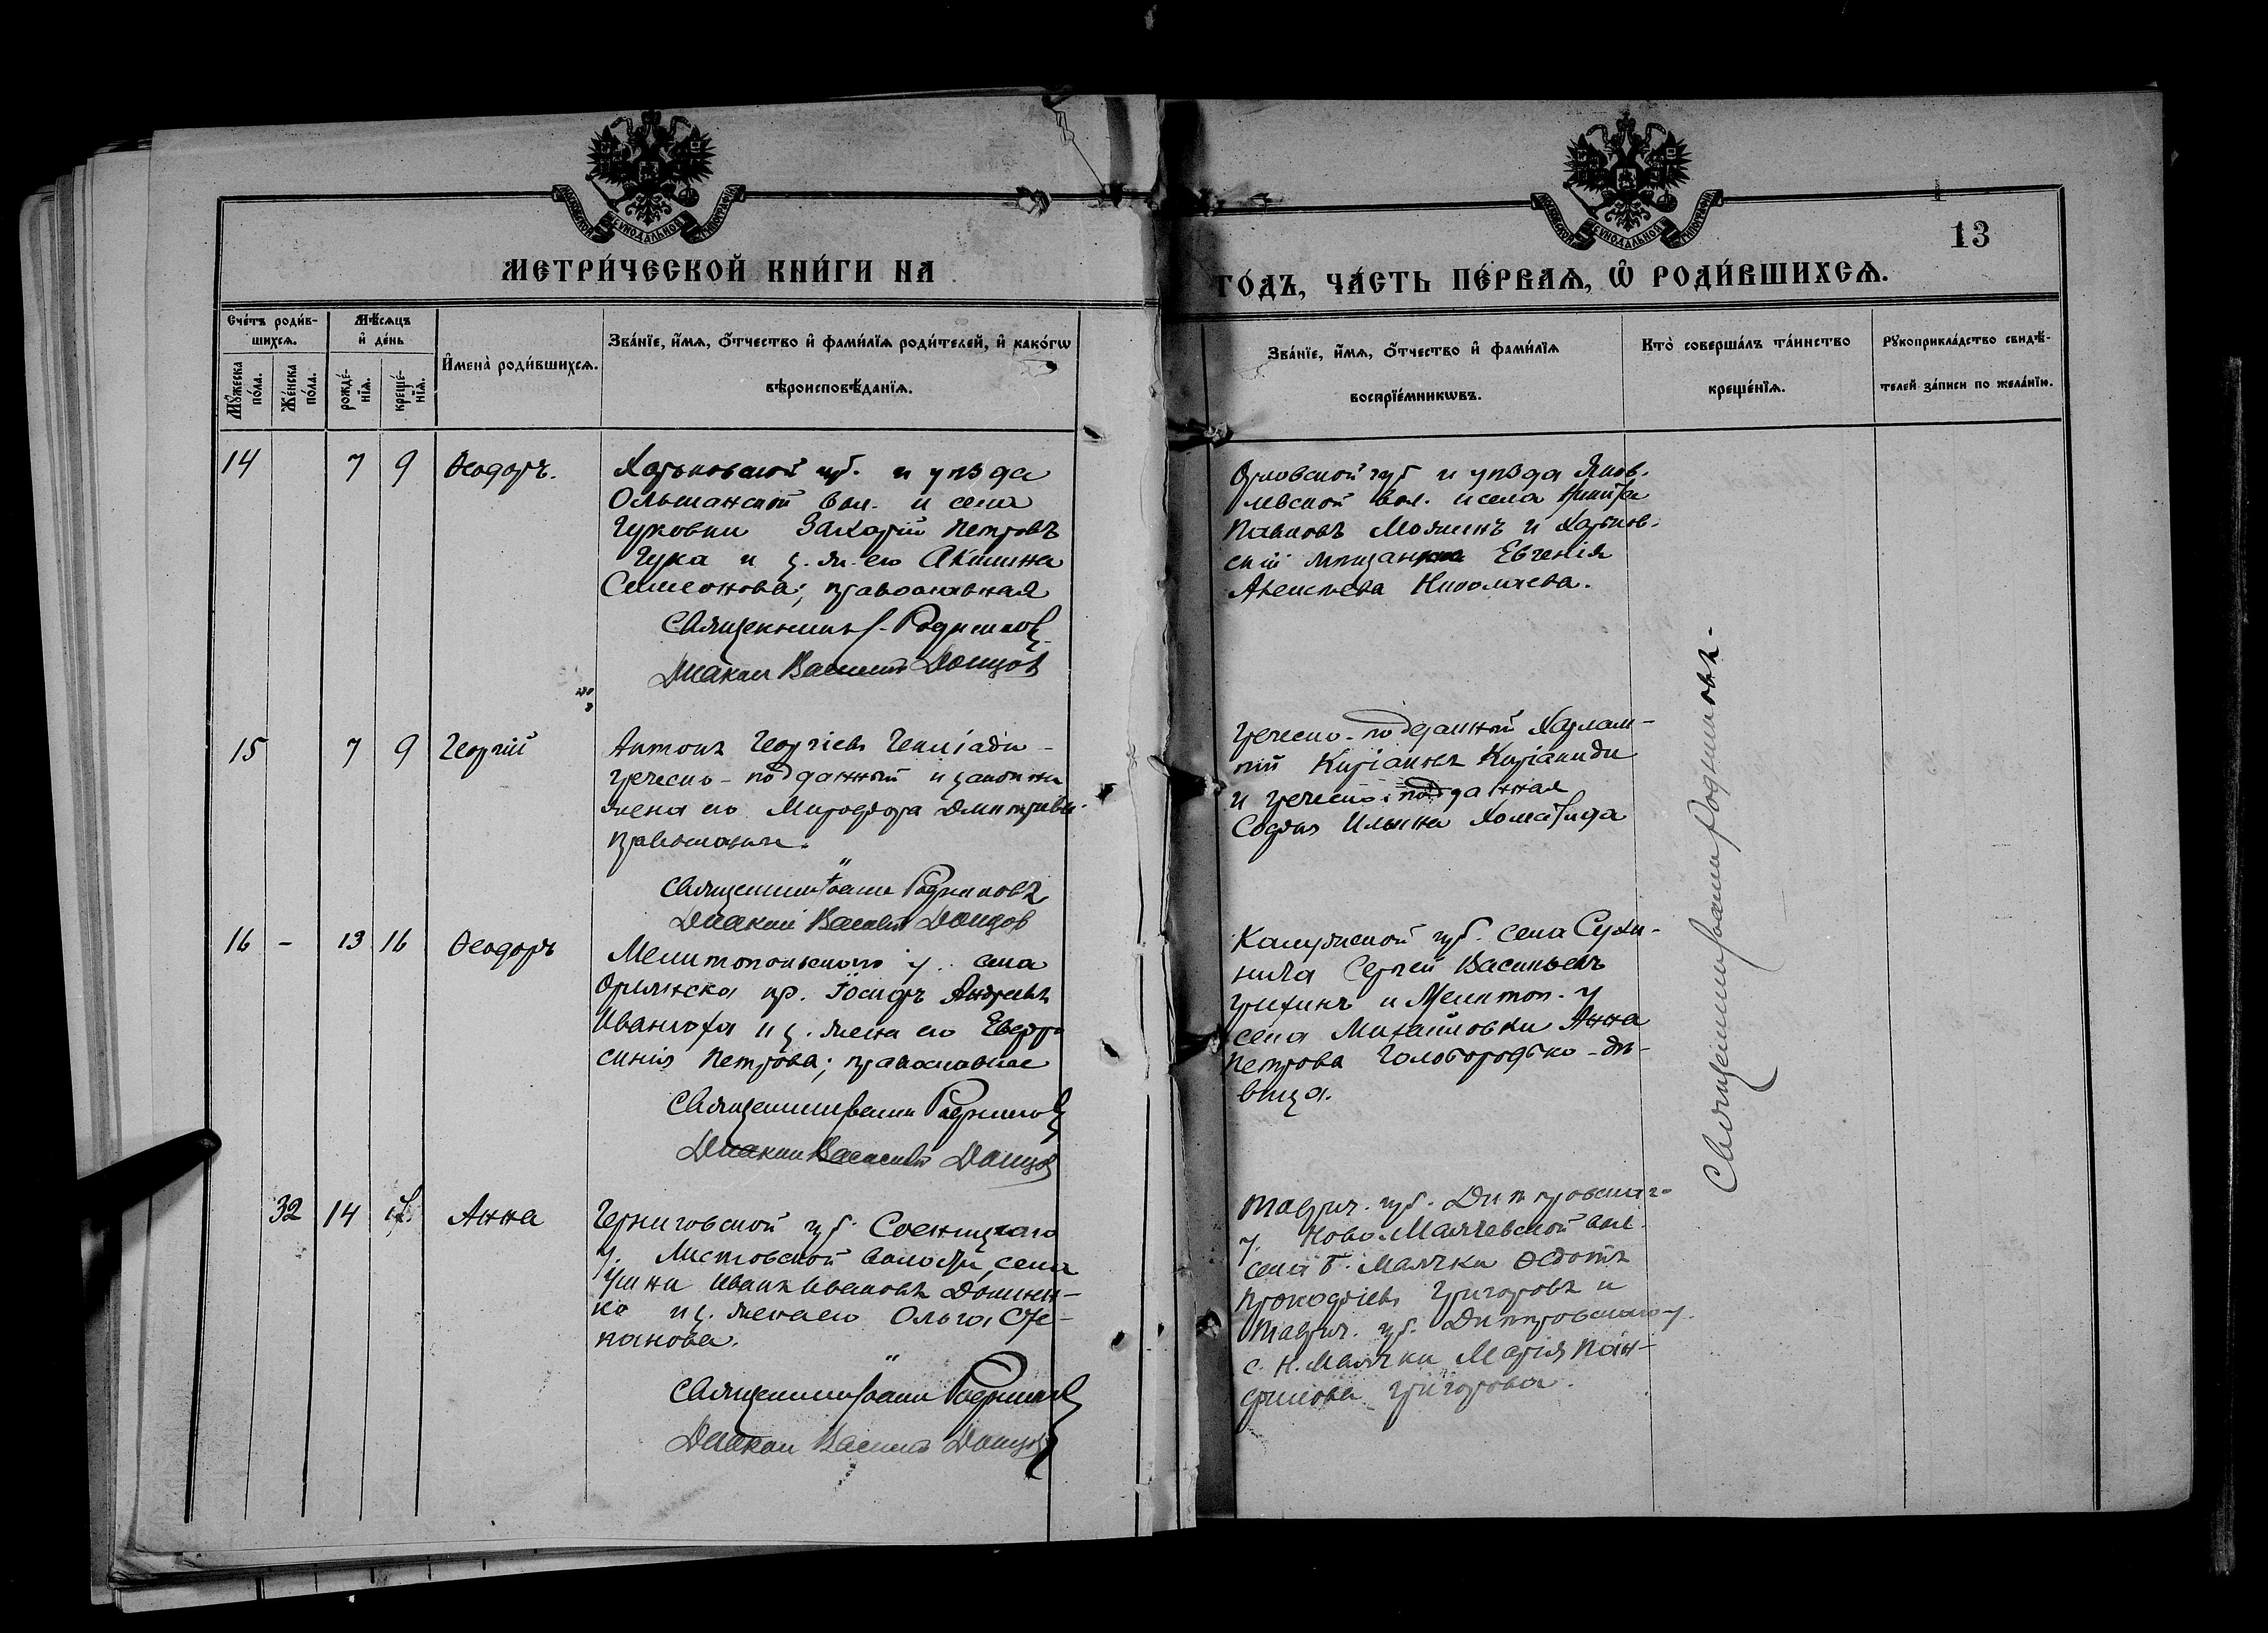 13
МЕТРИ́ЧЕСКОЙ КНИ́ГИ НА
ГО́ДЪ, ЧА́СТЬ ПЕ́РВАѦ, Ѡ҆ РОДИ́ВШИХСѦ.
Сче́тъ роди́в-
шихсѧ.
Мѣ́сѧцъ
и҆ де́нь
Мꙋ́жеска
по́ла.
Же́нска
по́ла.
рожде́-
нїѧ.
креще́-
нїѧ.
И҆мена̀ роди́вшихсѧ.
Зва́нїе, и҆́мѧ, ѻ҆́тчество и҆ фами́лїѧ роди́телей, и҆ како́гѡ
вѣроисповѣ́данїѧ.
Зва́нїе, и҆́мѧ, ѻ҆́тчество и҆ фами́лїѧ
воспрїе́мникѡвъ.
Кто̀ соверша́лъ та́инство
креще́нїѧ.
Рꙋкоприкла́дство свидѣ́-
телей за́писи по жела́нїю.
14 7 9 Ѳеодоръ.
Харьковской губ. и уѣзда
Ольшанской вол. и села
Захарій Петровъ
Чука и з. ж. его Акилина
Семеонова; православная
Священникъ Родниковъ
Диакон Василий Донцов
Орловской губ и уѣзда Яков-
левской вол. и села Никита
Павловъ и Харьков-
скій мѣщан Евгенія
Алексѣева Николаева.
15 7 9 Георгій
Антонъ Георгіевъ
греческо-подданный и законная
жена его Дмитріева
православн.
Священник Іоанн Родниковъ
Диакон Василий Донцов
греческо-подданный Харлам-
пій Киріаковъ Киріакиди
и греческо-подданная
Софія Ильина
16 - 13 16 Ѳеодоръ
Мелитопольскаго у. села
кр. Іосифъ Андреевъ
и з. жена его Евфро-
синія Петрова; православные
Священник Іоанн Родниковъ
Диакон Василий Донцов
Калужской губ. села Сухи-
нича Сергей Васильевъ
и Мелитоп. у
села Михайловки Анна
Петрова Голобородько - дѣ-
вица.
32 14 Анна
Черниговской губ. Сосницкаго
у. волости, села
Иванъ Ивановъ
ко и з. жена его Ольга Сте-
панова.
Священник Іоанн Родниковъ
Диакон Василий Донцов
Таврич. губ. Днѣпровскаго
у. Ново-Маячковской вол.
села Б. Маячки Ѳедотъ
Прокофіевъ Григоровъ и
Таврич. губ. Днѣпровскаго у.
с. Н. Маячки Марія Пан-
филова Григорова.
Священник Іоанн Родниковъ.